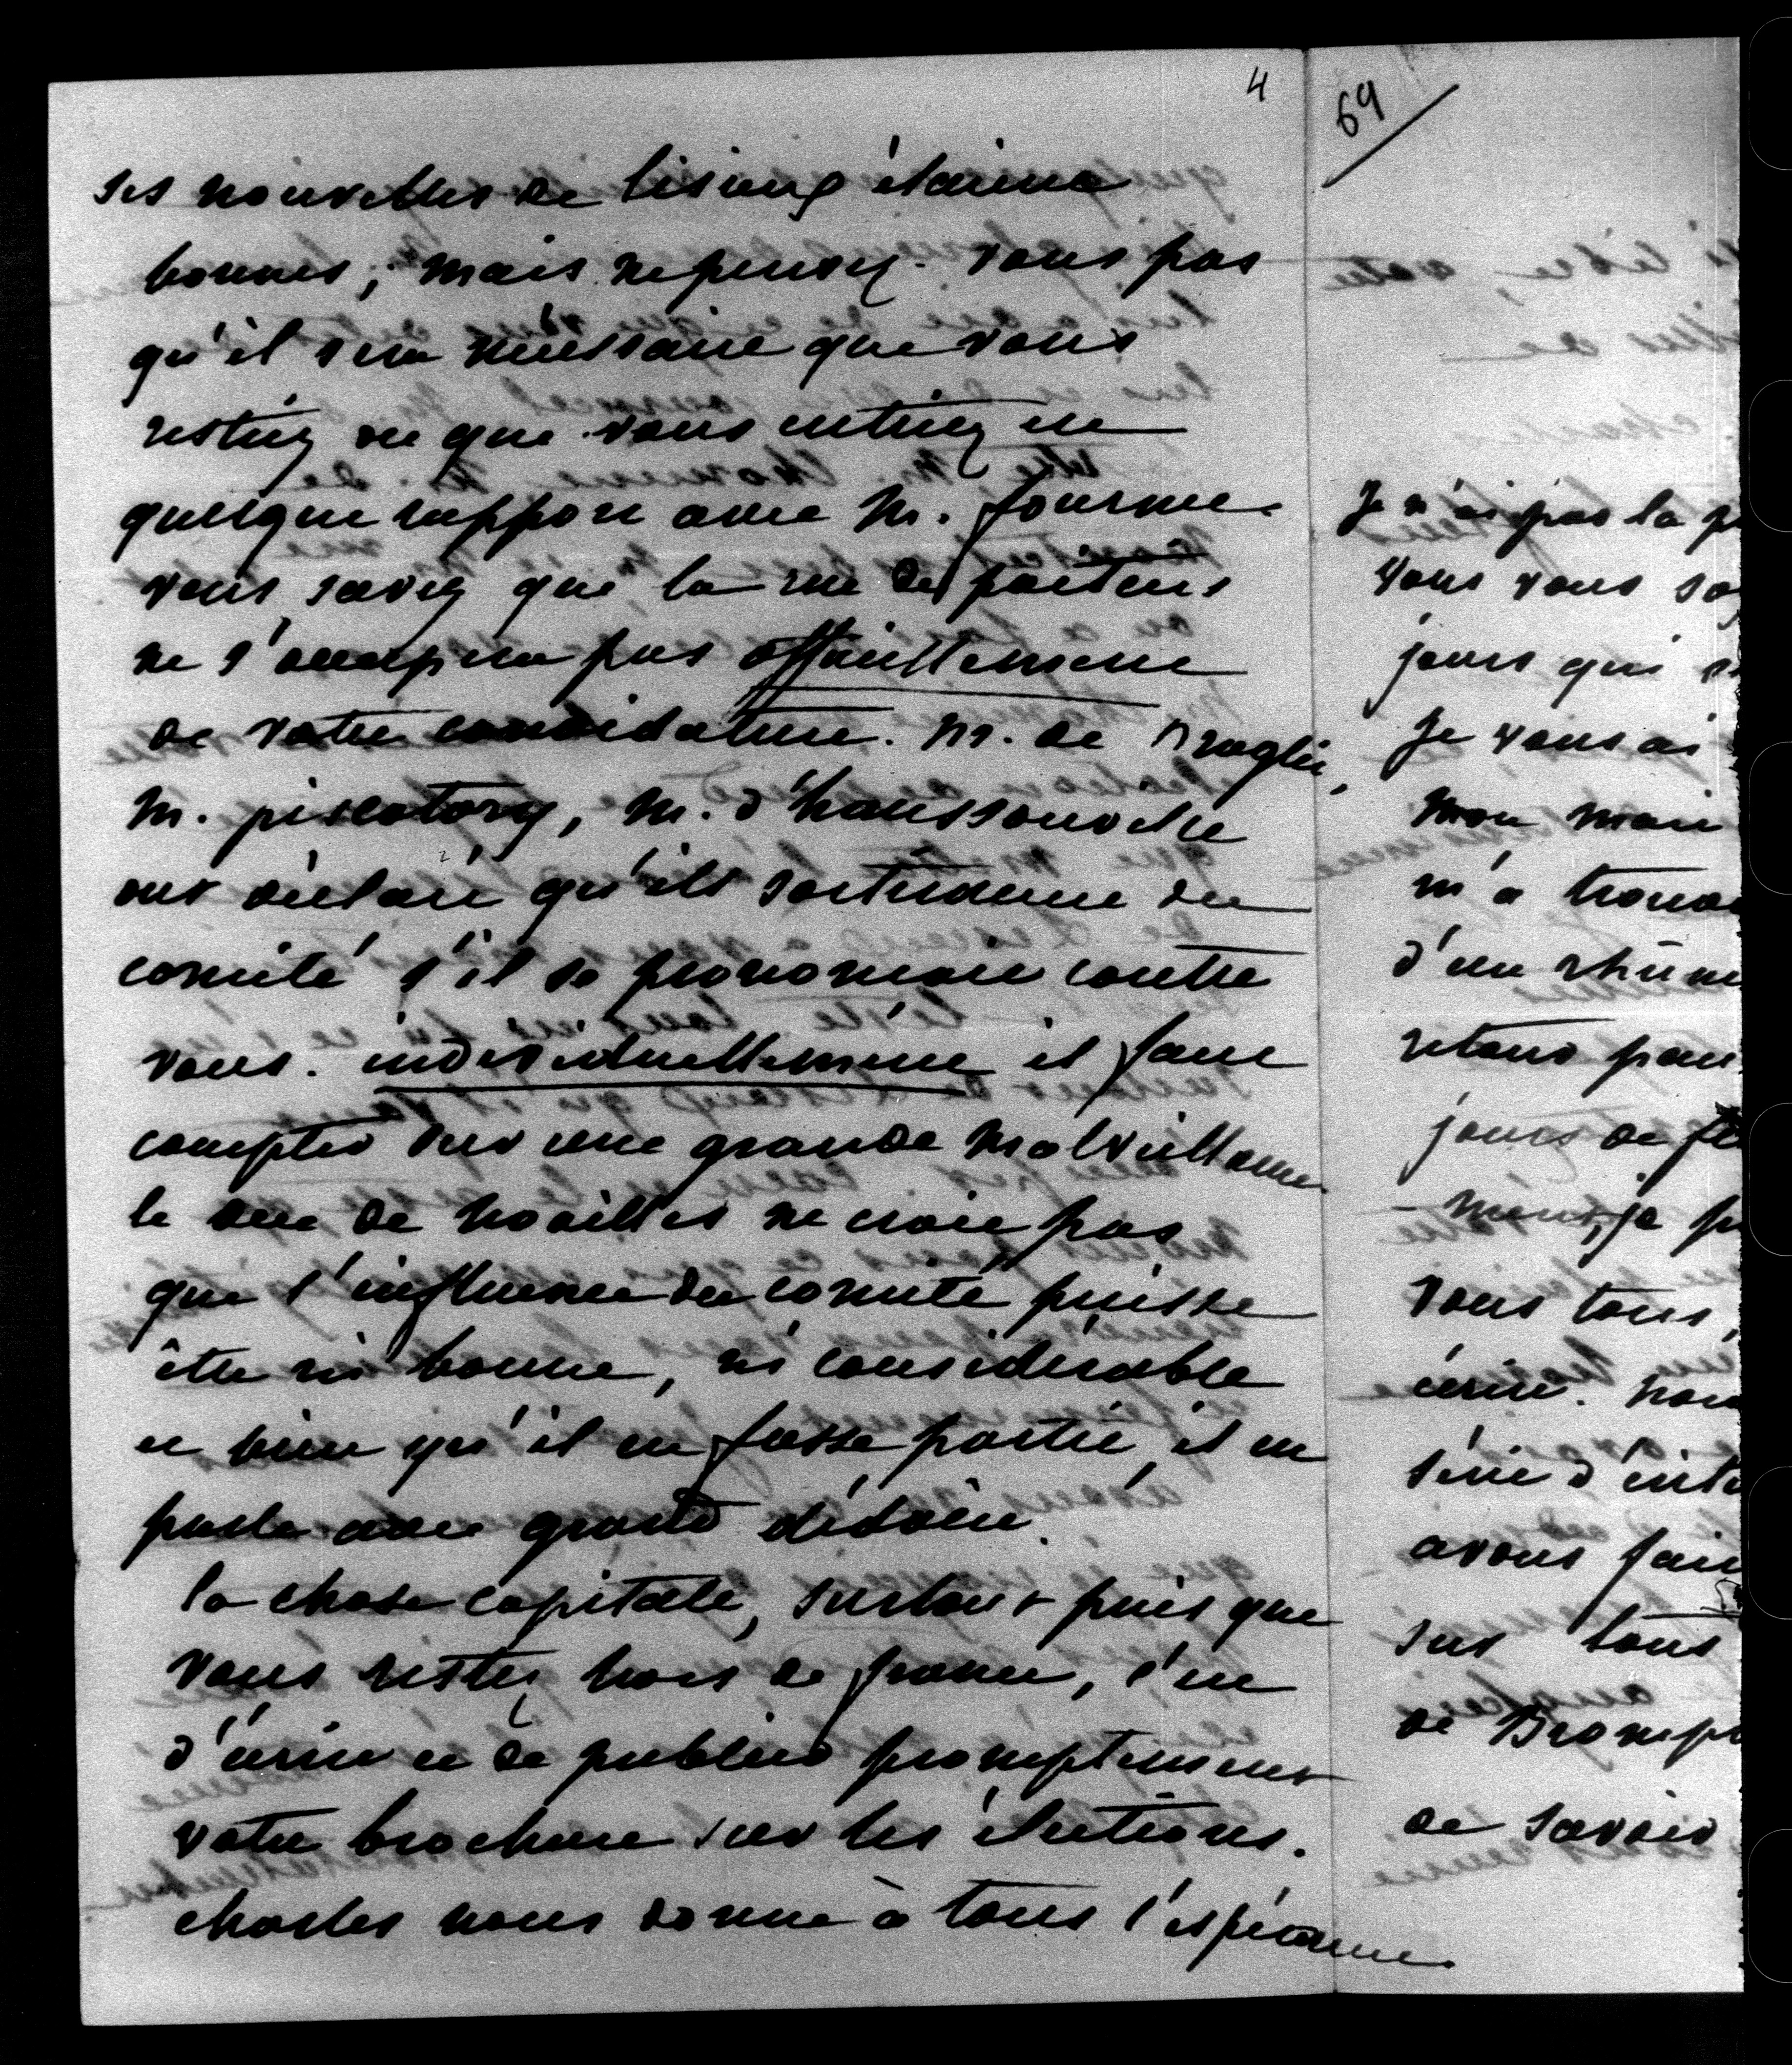 4
ses nouvelles de lisieux étaient
bonnes; mais ne pensez-vous pas
qu'il sera nécessaire que vous
restiez ou que vous entriez en
quelque rapport avec M. fournier
vous savez que la rue de poitiers
ne s'occupera pas officiellement
de votre candidature. M. de Broglie,
M. piscatory, M. d'haussonville
ont déclaré qu'ils sortiraient du
comité s'il se prononçait contre
vous. individuellement il faut
compter sur une grande malveillance.
le duc de noailles ne croit pas
que l'influence du comité puisse
être ni bonne, ni considérable
et bien qu'il en fasse partie il en
parle avec grand dédain.
la chose capitale, surtout puis que
vous restez hors de france, c'est
d'écrire et de publier promptement
votre brochure sur les élections.
charles nous donne à tous l'espérance
69
Je n'ai pas la
vous vous
jours qui
Je vous ai
mon mari
m'a
d'un rhume
retour
jours de
vous tous,
écrire.
série
avons fait
sur tous
de
de savoir